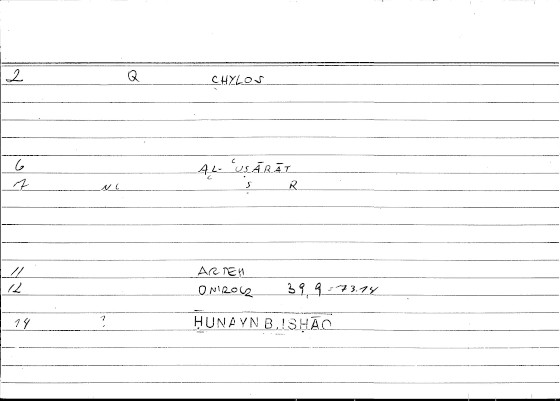 2 Q CHYLOS
6 AL- ʿUṢĀRĀT
7 NL Ṣ R
11 ARTEH
12 ONIROC 39, 9 = 73.14
14 ? ḤUNAYN B. ISḤĀQ